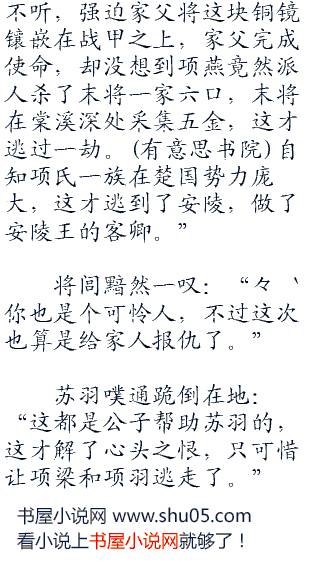 不听，强迫家父将这块铜镜
镶嵌在战甲之上，家父完成
使命，却没想到项燕竟然派
人杀了末将一家六口，末将
在棠溪深处采集五金，这才
逃过一劫。(有意思书院)自
知项氏一族在楚国势力庞
大，这才逃到了安陵，做了
安陵王的客卿。”
将闾黯然一叹：“々〝
你也是个可怜人，不过这次
也算是给家人报仇了。”
苏羽噗通跪倒在地：
“这都是公子帮助苏羽的，
这才解了心头之恨，只可惜
让项梁和项羽逃走了。”
书屋小说网 www.shu05.com
看小说上书屋小说网就够了！